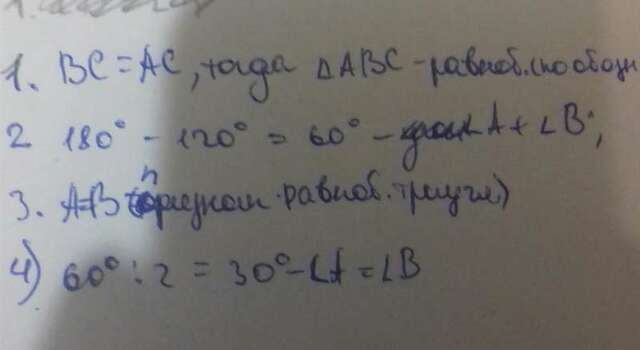 1. BC = AC, тогда △ABC - равноб. (по обозн
2 180° - 120° = 60° - ∠A + ∠B;
3. A=B (признак равноб. треуг.)
4) 60° : 2 = 30° - ∠A = ∠B